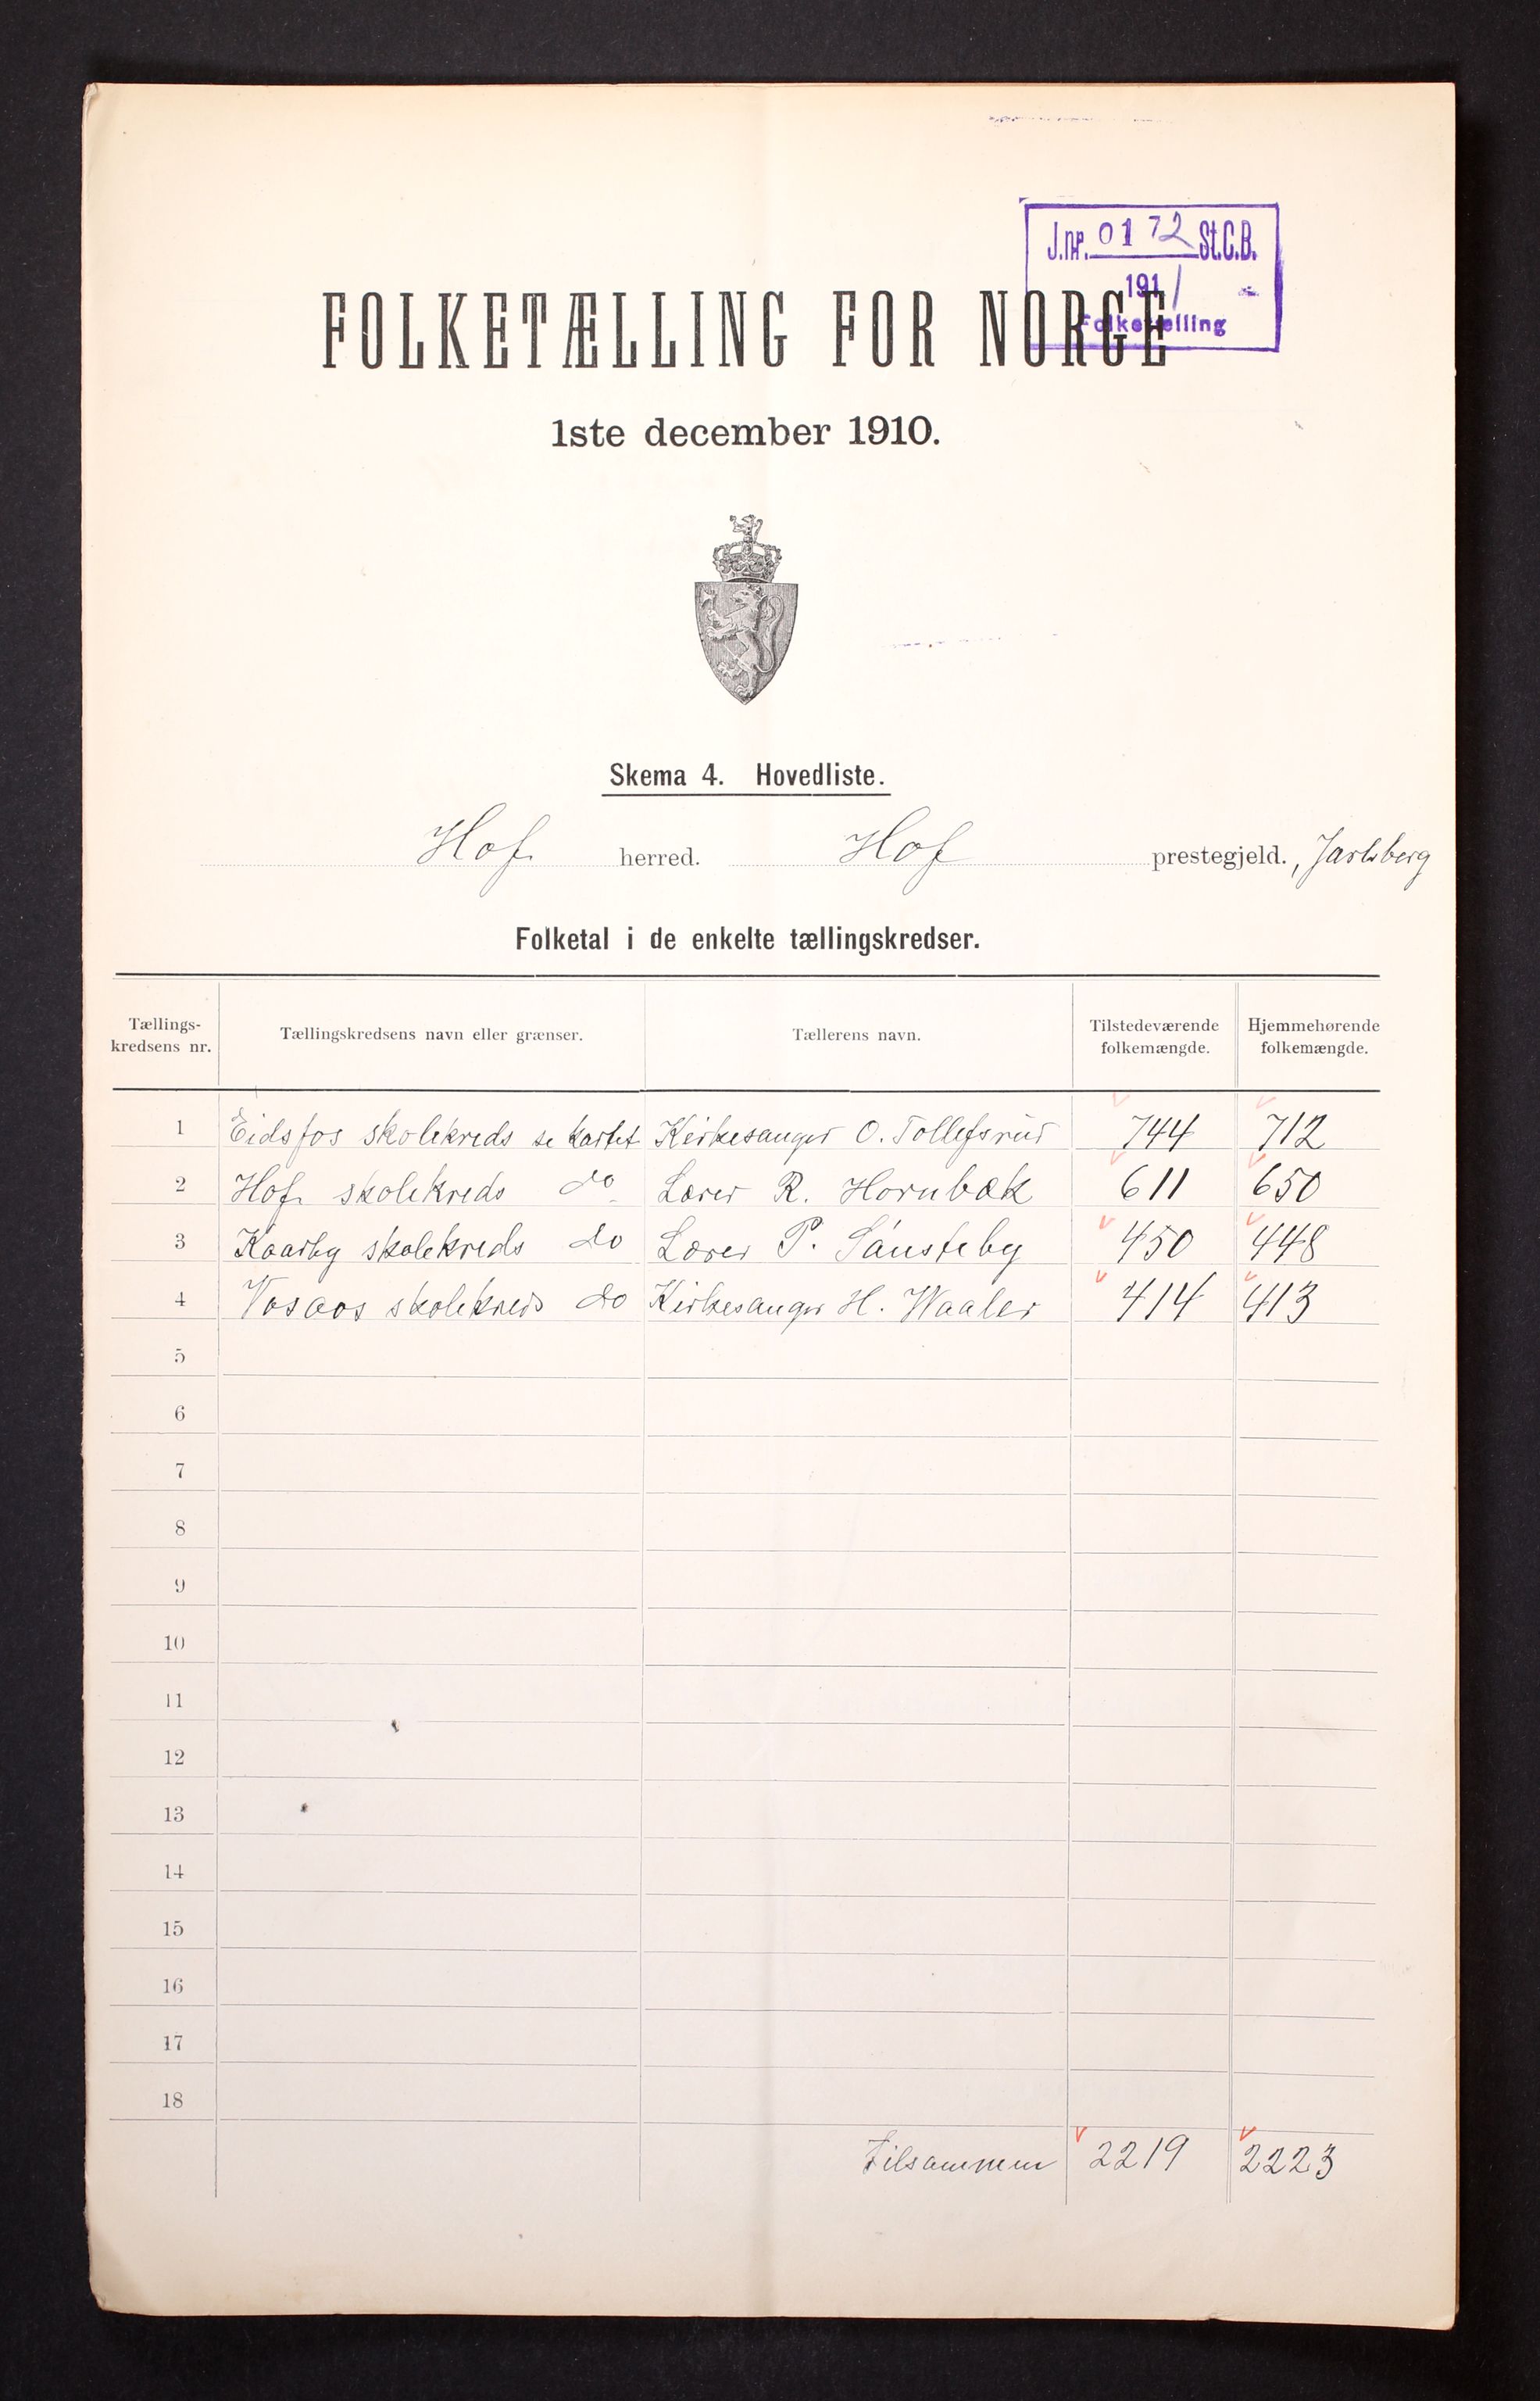 J.nr. 0172 St.C.B.
1911
Folketælling
FOLKETÆLLING FOR NORGE
1ste december 1910.
Skema 4. Hovedliste.
Hof herred. Hof prestegjeld., Jarlsberg
Folketal i de enkelte tællingskredser.
Tællings-kredsens nr. Tællingskredsens navn eller grænser. Tællerens navn. Tilstedeværende folkemængde. Hjemmehørende folkemængde.
1 Eidsfos skolekreds se kartet Kirkesanger O. Tollefsrud 744 712
2 Hof skolekreds do Lærer R. Hornbæk 611 650
3 Kaarby skolekreds do Lærer P. Sønsteby 450 448
4 Vasaas skolekreds do Kirkesanger H. Waaler 414 413
5
6
7
8
9
10
11
12
13
14
15
16
17
18
Tilsammen 2219 2223